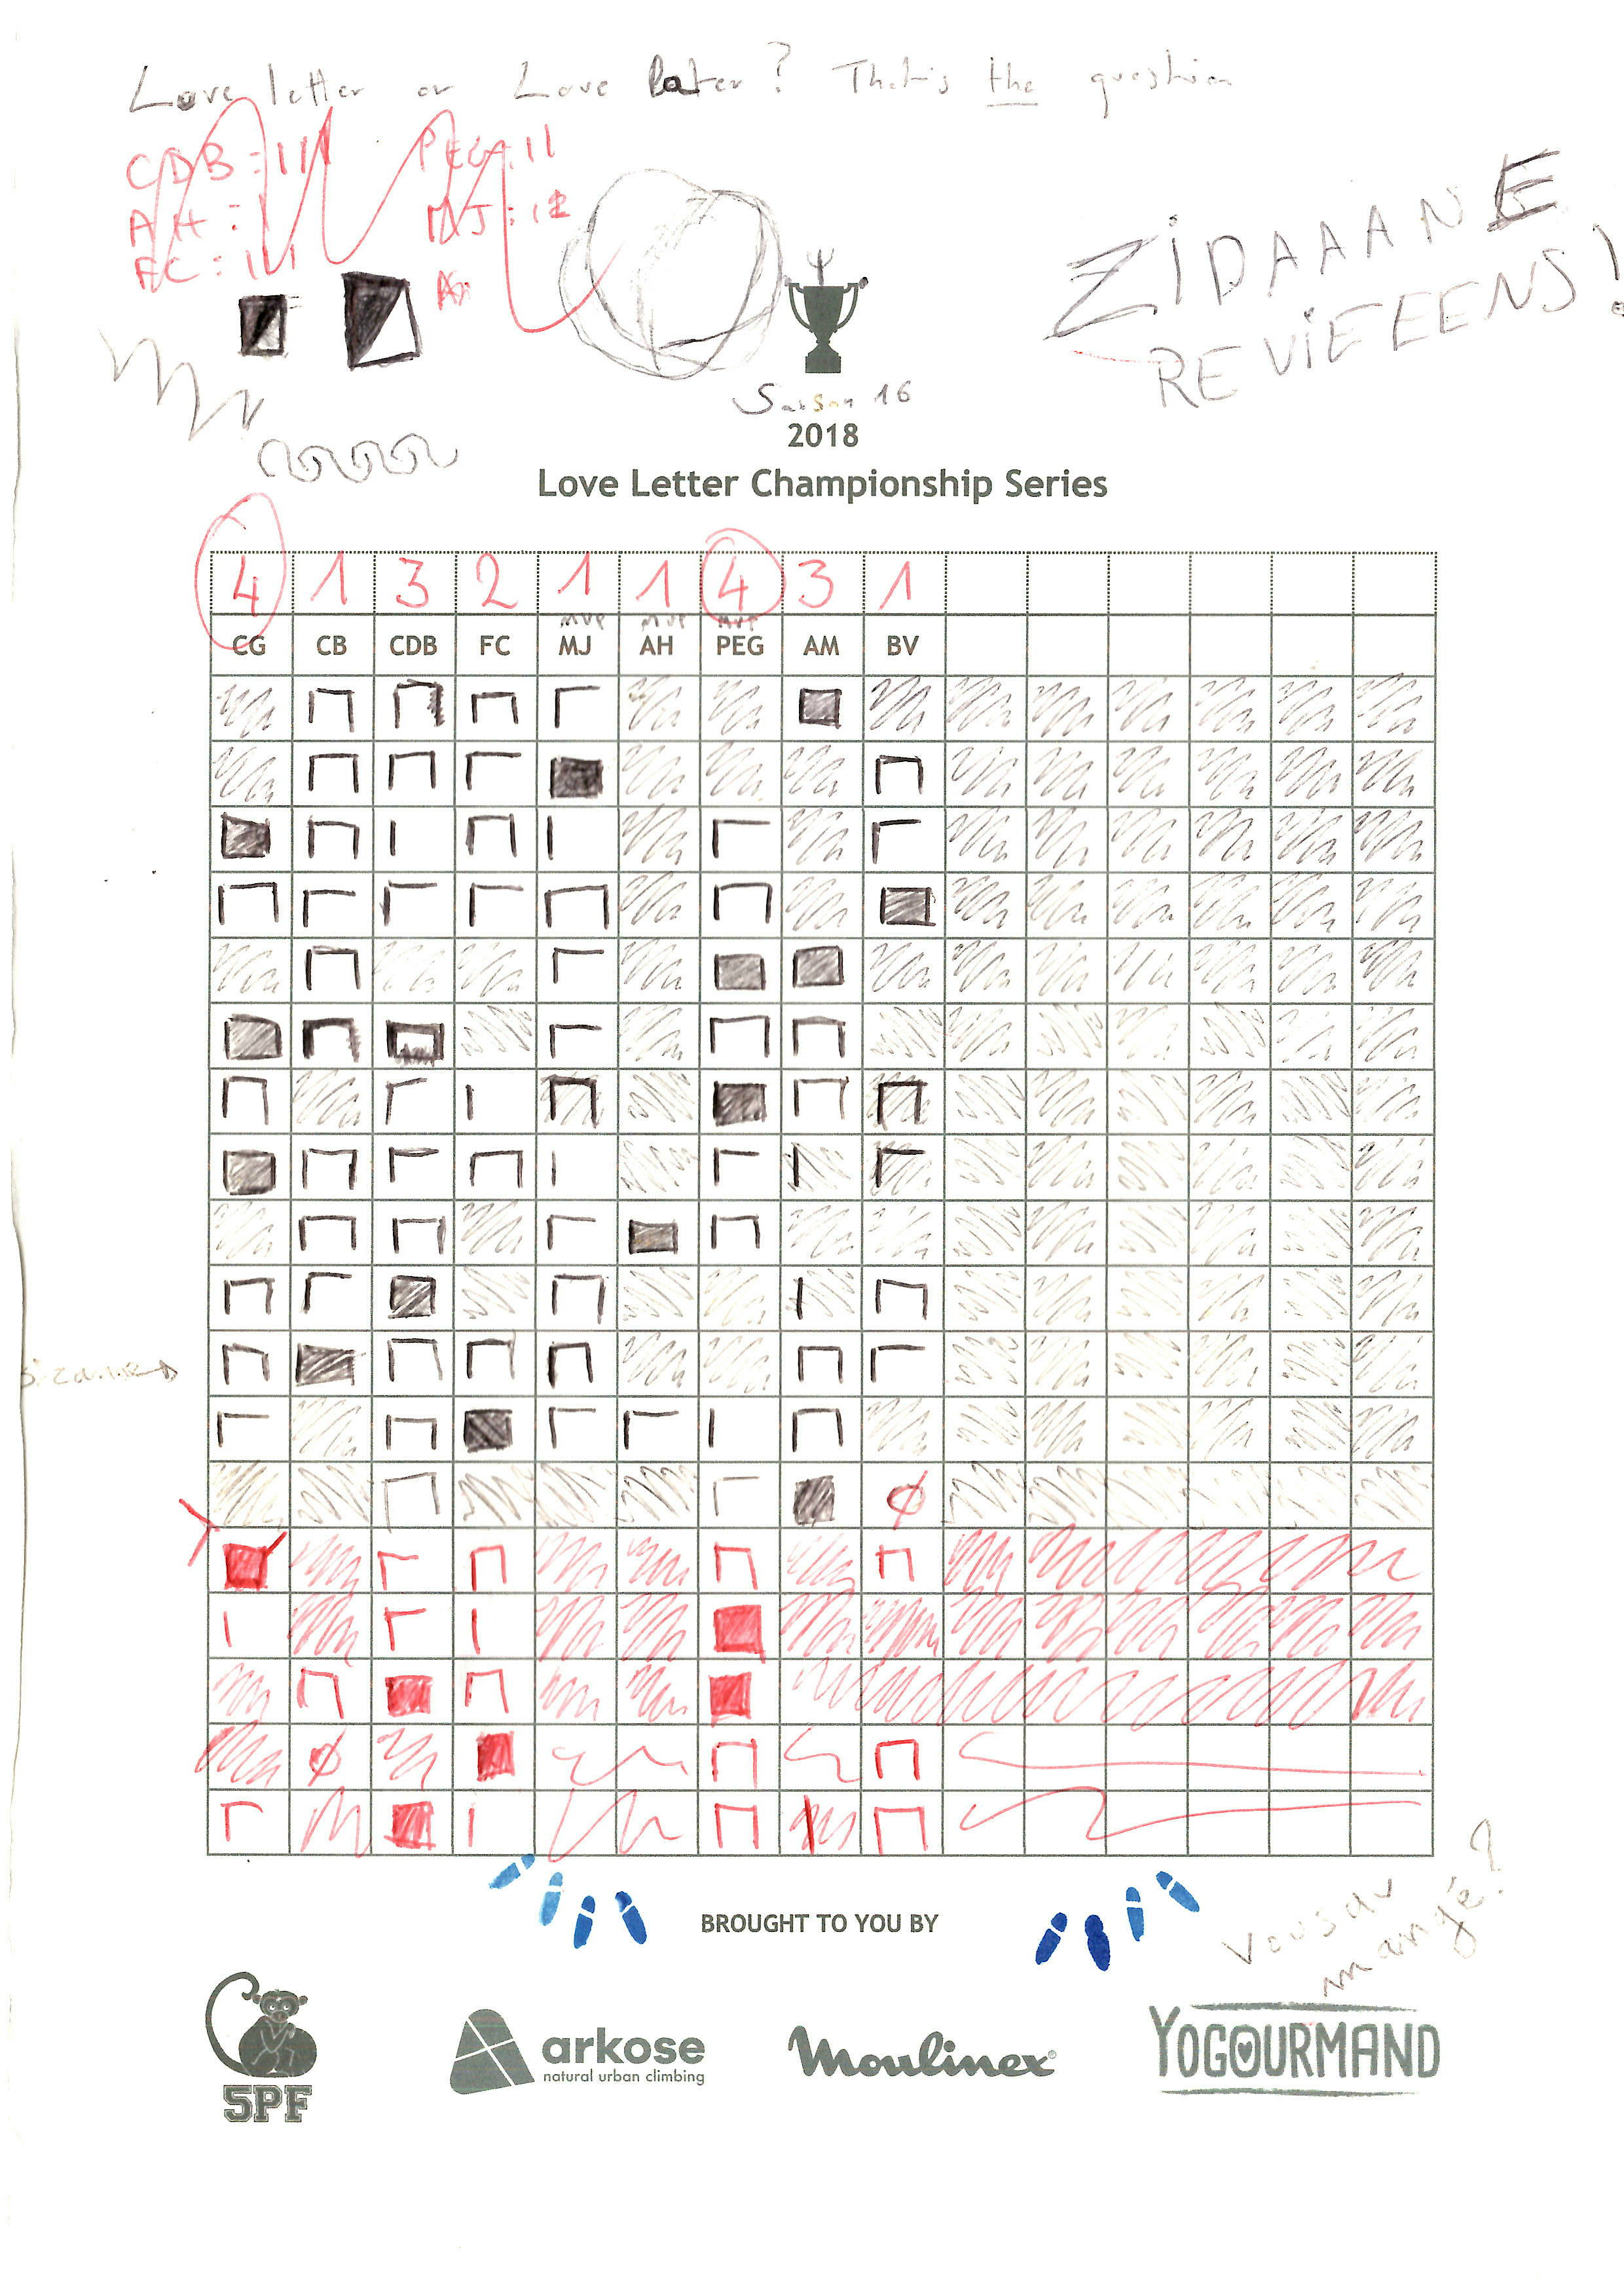 Love letter or Love later? That is the question
CDB: III PEG: II
AH: I MJ: II
FC: III
ZIDAAANE
REVIEEEENS!
Saison 16
2018
Love Letter Championship Series
4 1 3 2 1 1 4 3 1
MVP MVP MVP
CG CB CDB FC MJ AH PEG AM BV
BROUGHT TO YOU BY
mangé?
5PF
arkose
natural urban climbing
Moulinex
YOGOURMAND